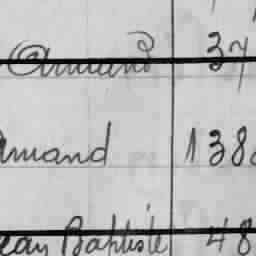 Amand 37
mand 138
ean Baptiste 48